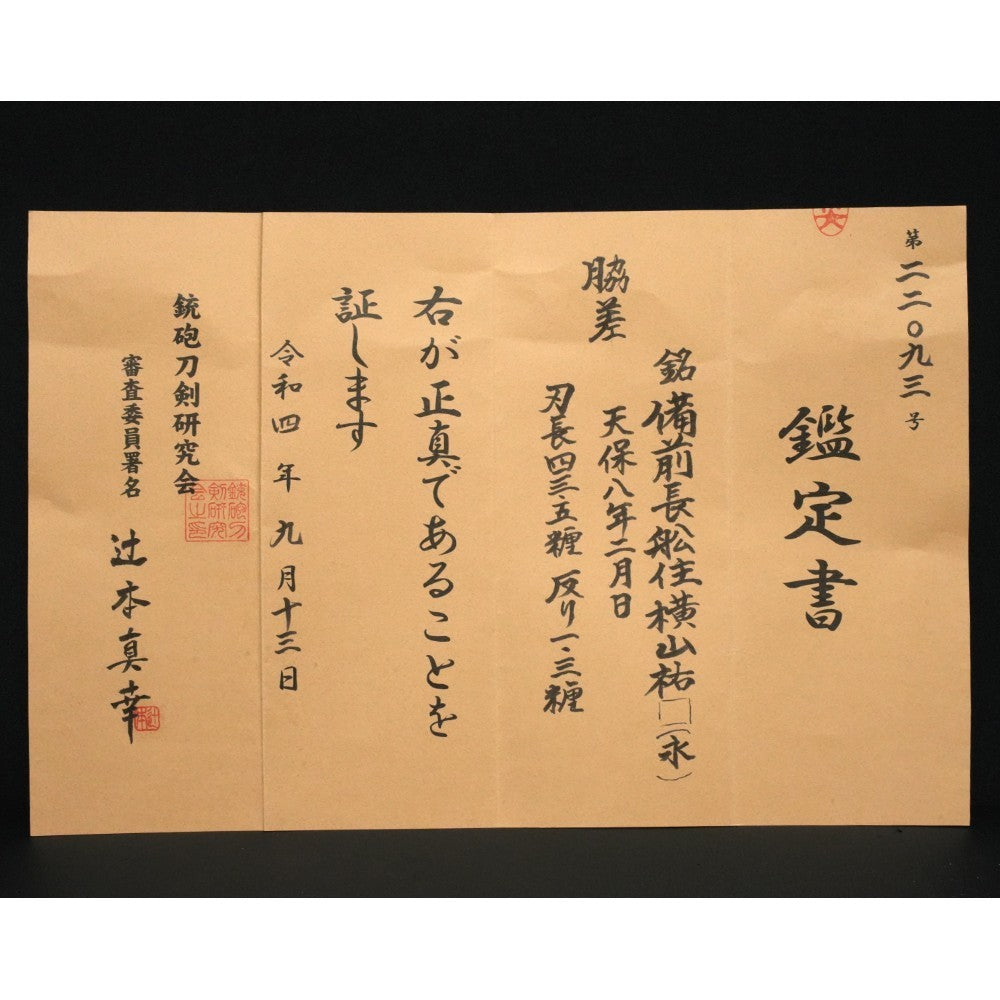 第二二〇九三号
鑑定書
脇差
銘 備前長舩住横山祐□(永)
天保八年二月日
刃長四三・五糎 反り一・三糎
右が正真であることを
証します
令和四年九月十三日
銃砲刀剣研究会
審査委員署名 辻本真幸
銃砲刀
剣研究
会之印
辻本